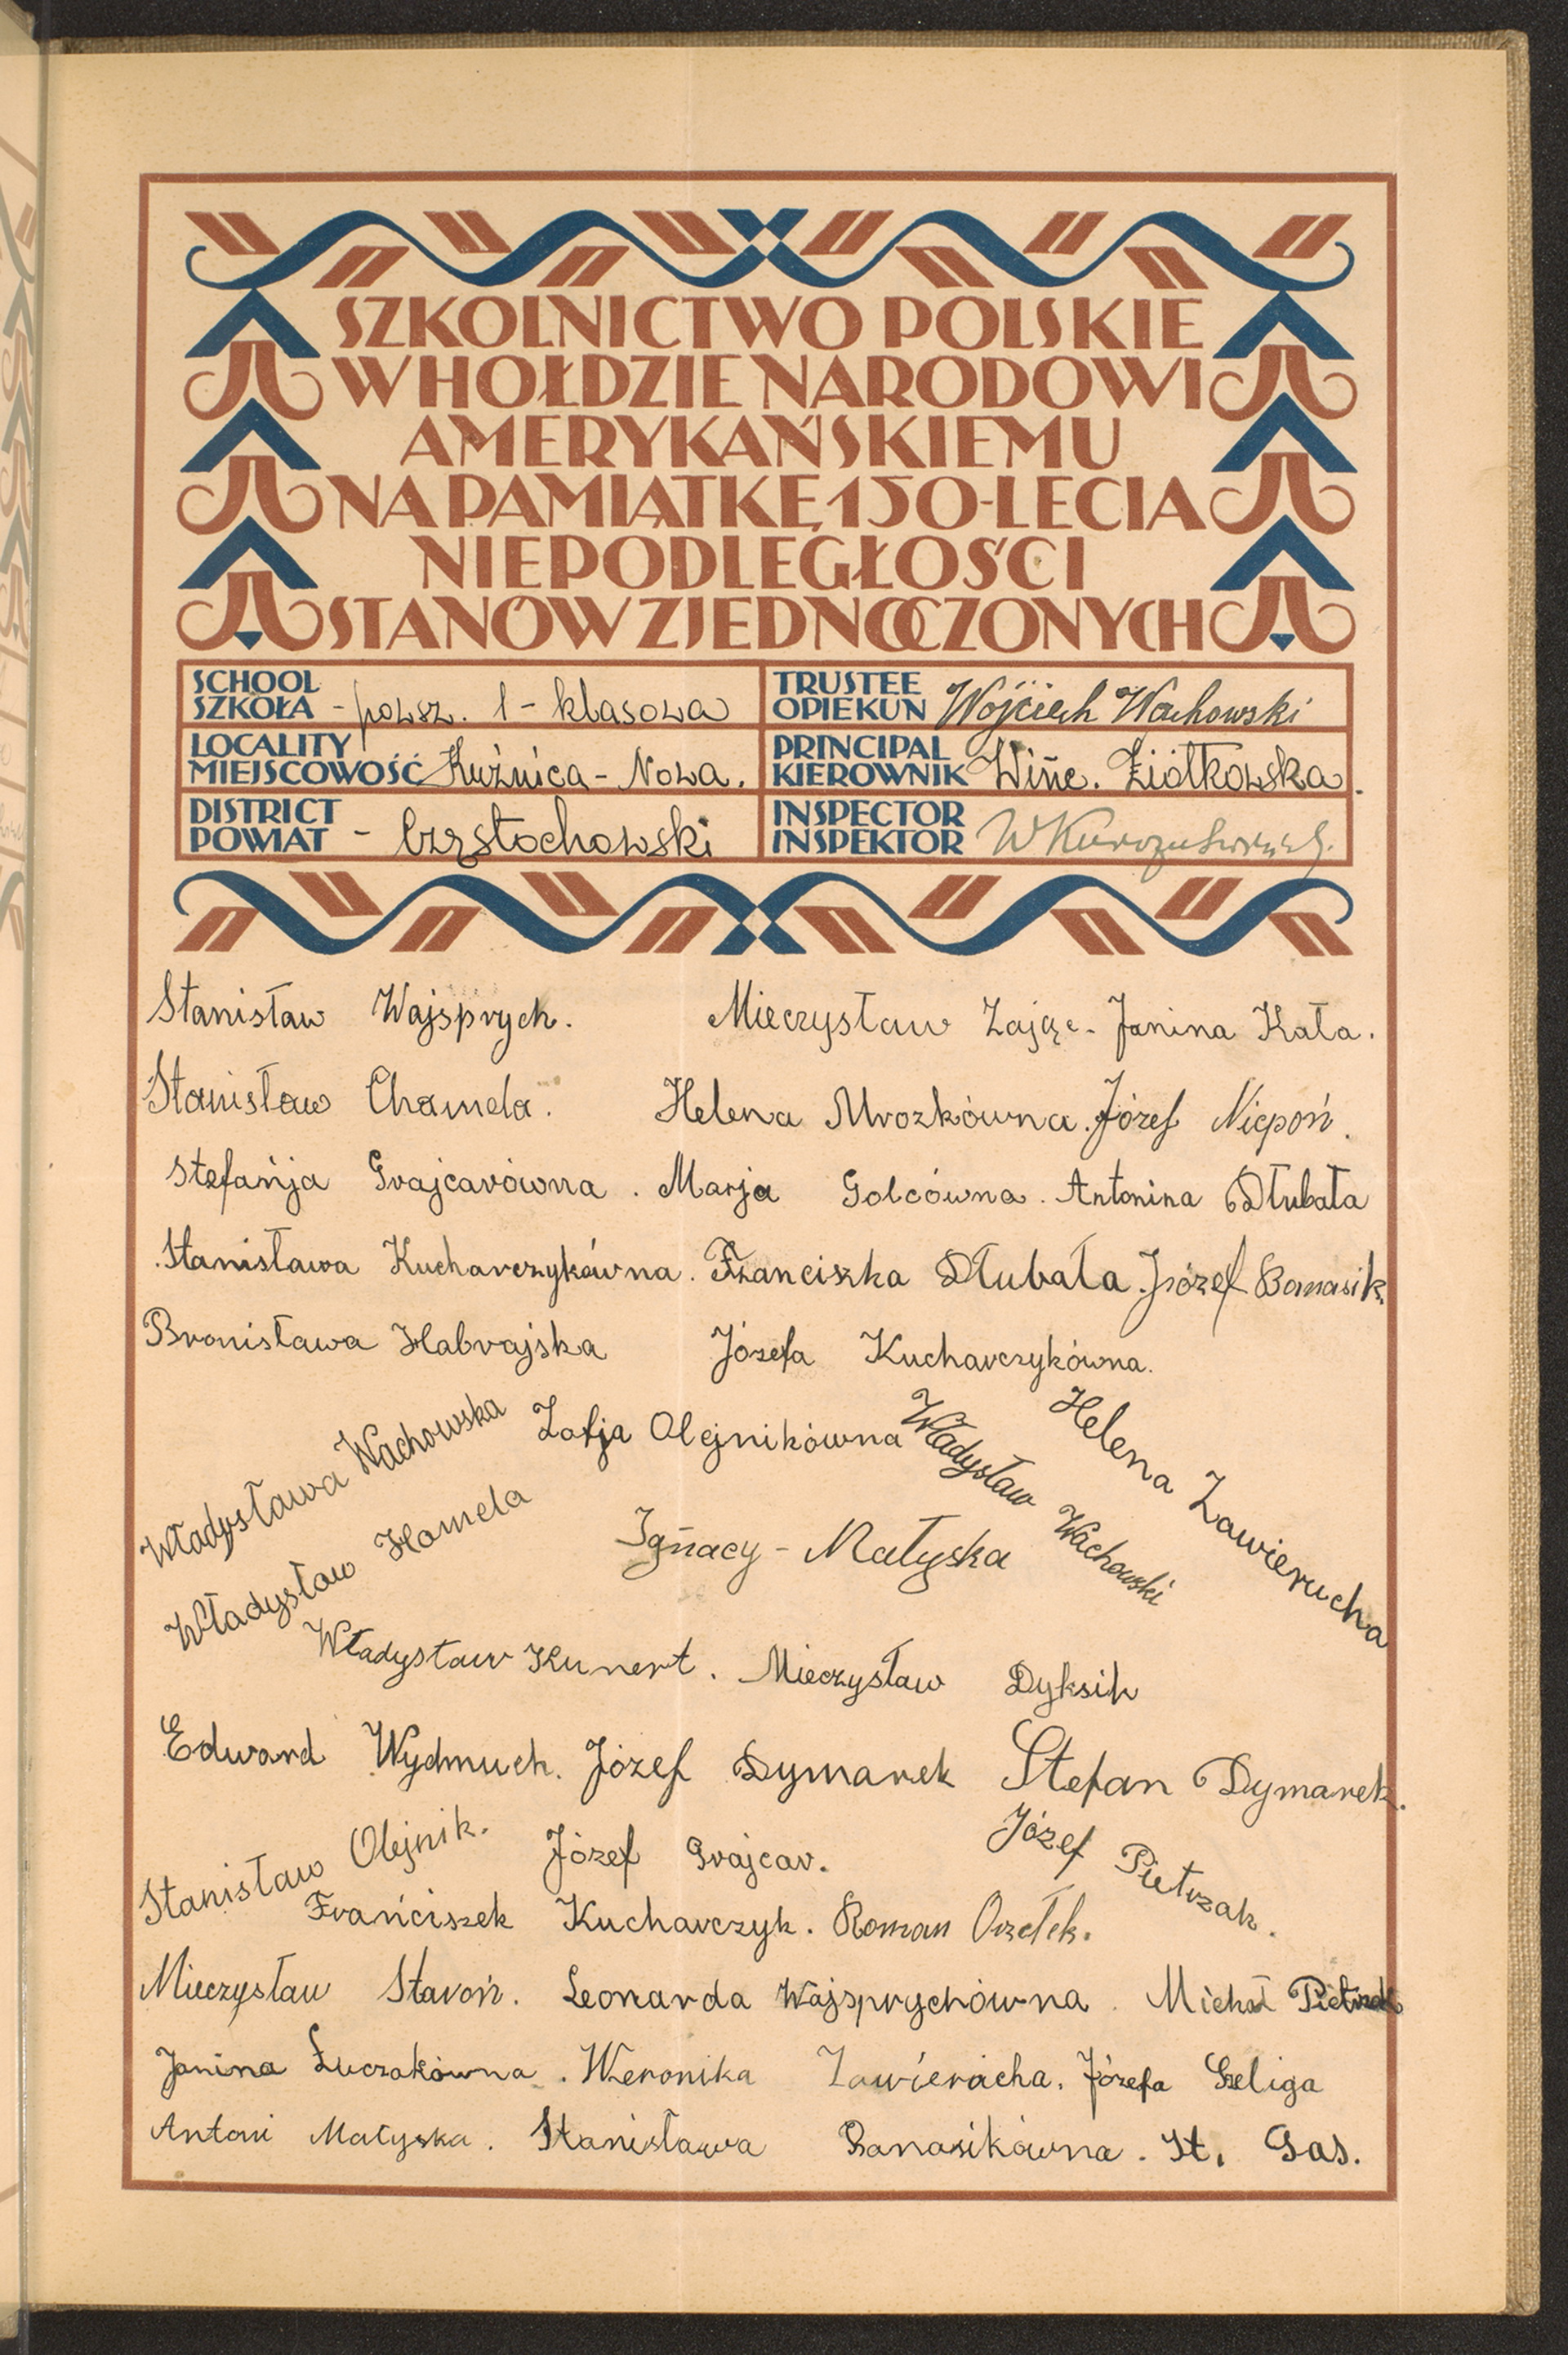 SZKOLNICTWO POLSKIE
W HOŁDZIE NARODOWI
AMERYKAŃSKIEMU
NA PAMIĄTKĘ 150-LECIA
NIEPODLEGŁOŚCI
STANÓW ZJEDNOCZONYCH
SCHOOL
SZKOŁA - powsz. 1 - klasowa
TRUSTEE
OPIEKUN Wojciech Wachowski
LOCALITY
MIEJSCOWOŚĆ Kuźnica - Nowa.
PRINCIPAL
KIEROWNIK Winc. Ziółkowska.
DISTRICT
POWIAT - Częstochowski
INSPECTOR
INSPEKTOR
Stanisław Wajsprych. Mieczysław Zając - Janina Kała.
Stanisław Chamela. Helena Mrozkówna. Józef Niepoń.
Stefańja Grajcarówna. Marja Golcówna. Antonina Dłubała
Stanisława Kucharczykówna. Franciszka Dłubała. Józef Banasik
Bronisława Habrajska Józefa Kucharczykówna.
Władysława Wachowska Zofja Olejnikówna Władysław Wachowski Helena Zawierucha
Władysław Hamela Ignacy - Małyska
Władysław Kunert. Mieczysław Dyksik
Edward Wydmuch. Józef Dymarek Stefan Dymarek.
Stanisław Olejnik. Józef Grajcar. Józef Pietrzak.
Frańciszek Kucharczyk. Roman Orzełek.
Mieczysław Staroń. Leonarda Wajsprychówna. Michał Pietrzak
Janina Łuczakówna. Weronika Zawierucha. Józefa Szeliga
Antoni Małyska. Stanisława Banasikówna. St. Gas.